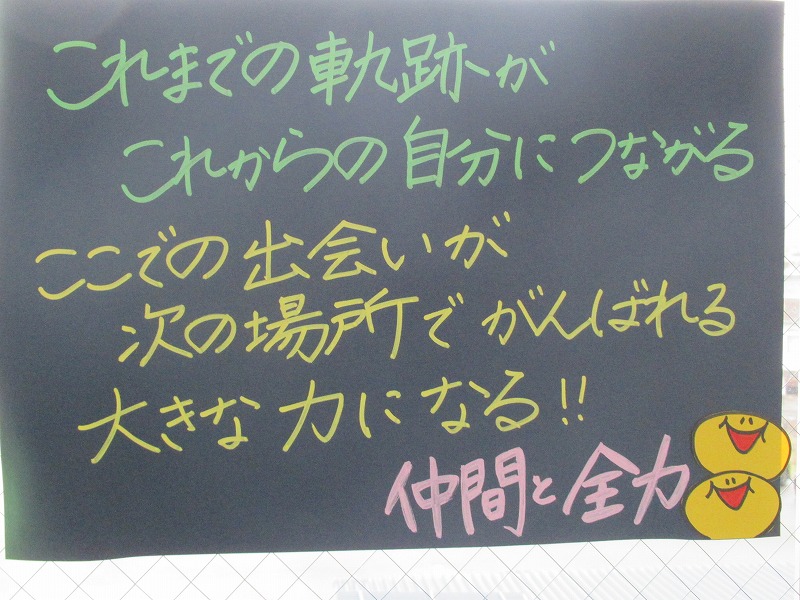 これまでの軌跡が
これからの自分につながる
ここでの出会いが
次の場所でがんばれる
大きな力になる!!
仲間と全力